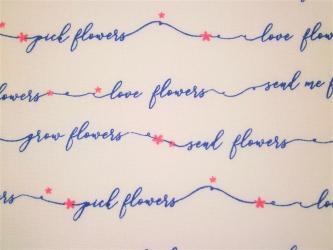 pick flowers love flowers
flowers love flowers send me f
grow flowers send flowers
s pick flowers lo